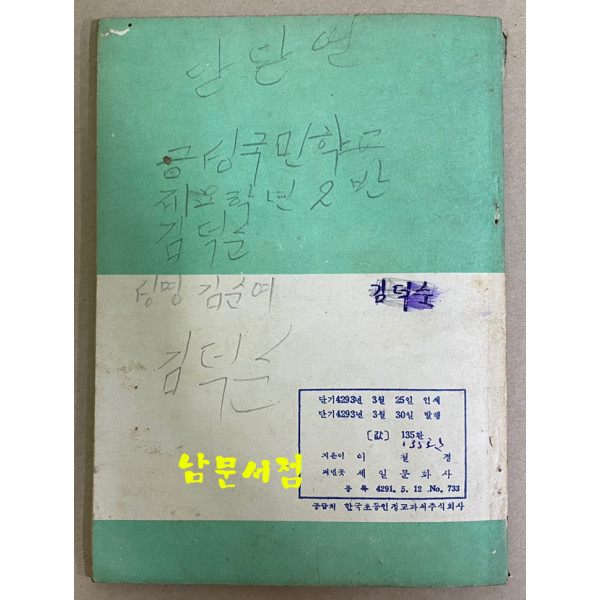 금성국민학교
제오학년 2 반
김덕순
성명 김순여
김덕순
김덕순
단기4293년 3월 25일 인쇄
단기4293년 3월 30일 발행
[값] 135환
지은이 이 철 경
펴낸곳 세 일 문 화 사
등록 4291. 5. 12 .No. 733
공급처 한국초등인정교과서주식회사
남문서점